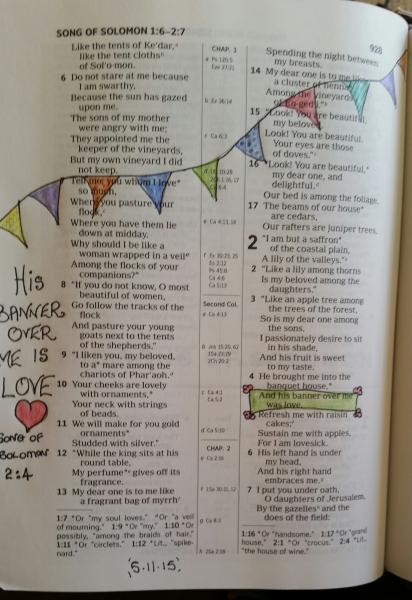 SONG OF SOLOMON 1:6–2:7
928
Like the tents of Ke′dar,
like the tent cloths
of Sol′o·mon.
6 Do not stare at me because
I am swarthy,
Because the sun has gazed
upon me.
The sons of my mother
were angry with me;
They appointed me the
keeper of the vineyards,
But my own vineyard I did
not keep.
Tell me, you whom I love*
so much,
Where you pasture your
flock,
Where you have them lie
down at midday.
Why should I be like a
woman wrapped in a veil*
Among the flocks of your
companions?"
8 "If you do not know, O most
beautiful of women,
Go follow the tracks of the
flock
And pasture your young
goats next to the tents
of the shepherds."
9 "I liken you, my beloved,
to a* mare among the
chariots of Phar′aoh.
10 Your cheeks are lovely
with ornaments,*
Your neck with strings
of beads.
11 We will make for you gold
ornaments*
Studded with silver."
12 "While the king sits at his
round table,
My perfume* gives off its
fragrance.
13 My dear one is to me like
a fragrant bag of myrrh
1:7 *Or "my soul loves." *Or "a veil
of mourning." 1:9 *Or "my." 1:10 *Or
possibly, "among the braids of hair."
1:11 *Or "circlets." 1:12 *Lit., "spike-
nard."
CHAP. 1
Second Col.
CHAP. 2
Spending the night between
my breasts.
14 My dear one is to me like
a cluster of henna
Among the vineyards
15
Look! You are beautiful,
my beloved.
Look! You are beautiful.
Your eyes are those
of doves."
16 "Look! You are beautiful,*
my dear one, and
delightful.
Our bed is among the foliage.
17 The beams of our house*
are cedars,
Our rafters are juniper trees.
2 "I am but a saffron*
of the coastal plain,
A lily of the valleys."
2 "Like a lily among thorns
Is my beloved among the
daughters."
3 "Like an apple tree among
the trees of the forest,
So is my dear one among
the sons.
I passionately desire to sit
in his shade,
And his fruit is sweet
to my taste.
4 He brought me into the
banquet house,*
And his banner over me
was love.
Refresh me with raisin
cakes;
Sustain me with apples,
For I am lovesick.
6 His left hand is under
my head,
And his right hand
embraces me.
7 I put you under oath,
O daughters of Jerusalem,
By the gazelles and the
does of the field:
1:16 *Or "handsome." 1:17 *Or "grand
house." 2:1 *Or "crocus." 2:4 *Lit.,
"the house of wine."
His
BANNER
OVER
ME IS
LOVE
Song of
Solomon
2:4
5.11.15